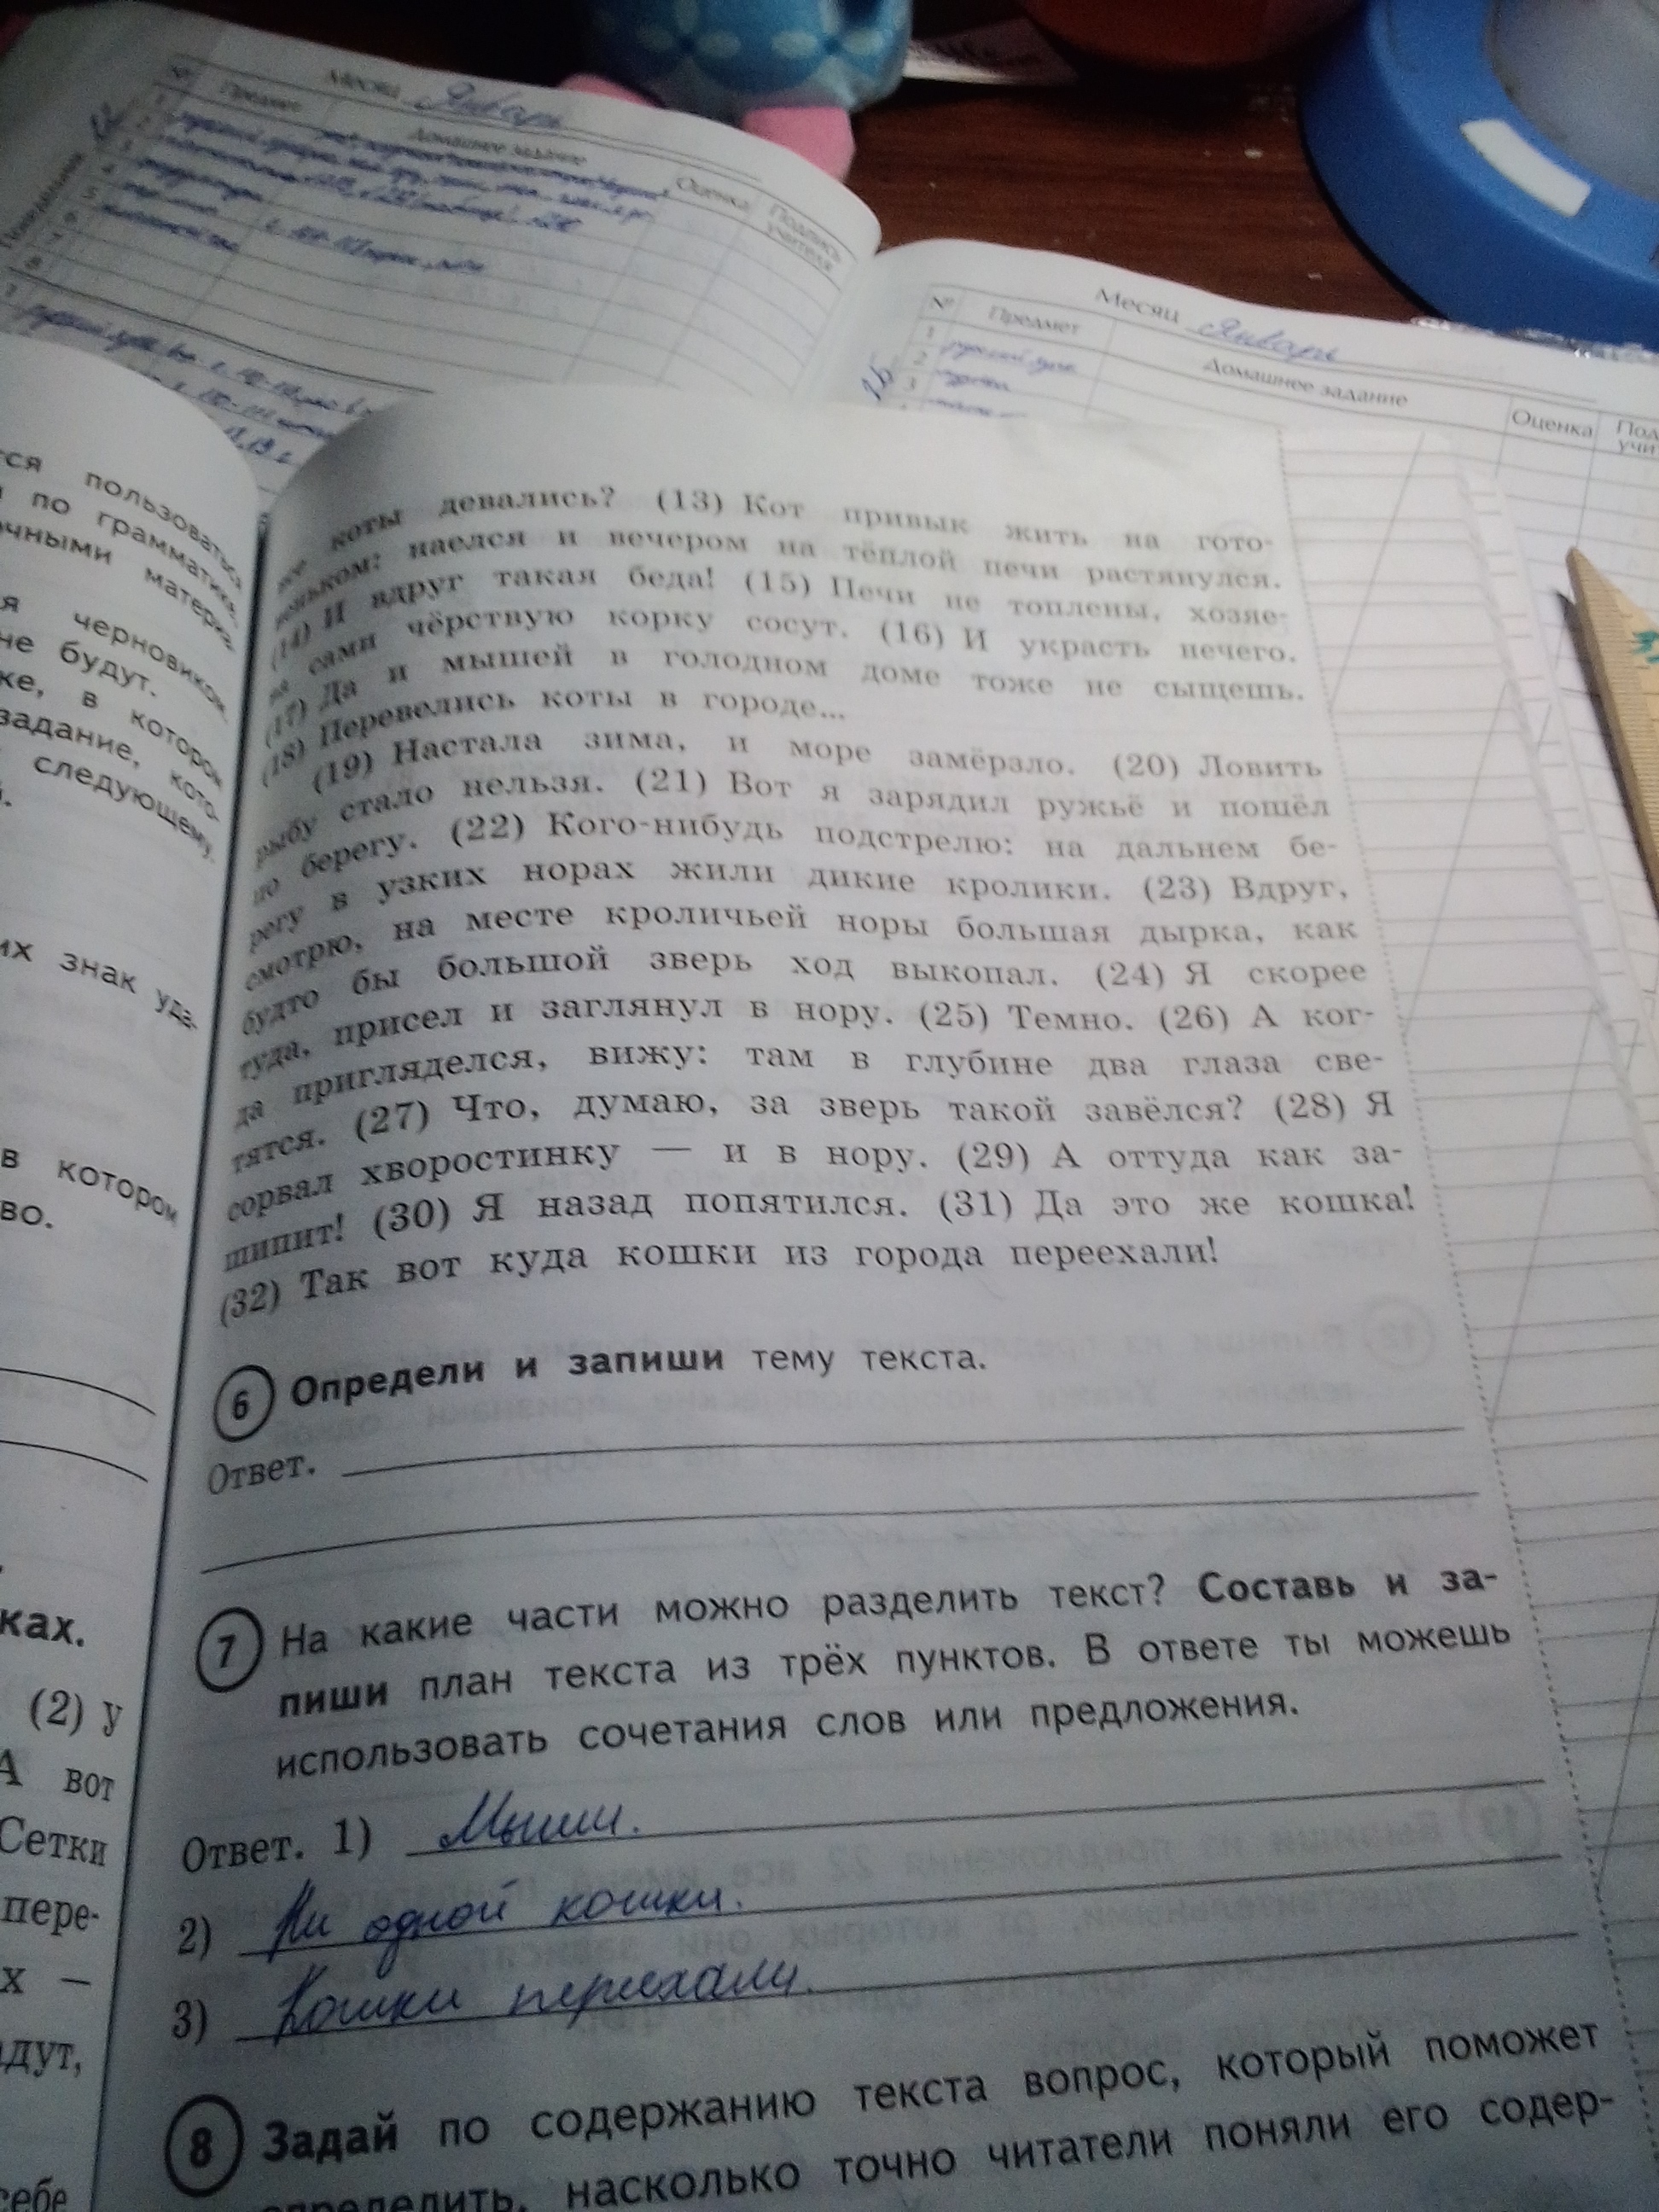 Месяц Январь
№ Предмет Домашнее задание Оценка Подпись учителя
1
2
3
4
5
6
7
8
Месяц Январь
№ Предмет Домашнее задание Оценка
1
2
3
тся пользоваться
по грамматике,
очными матери-
я черновиком
не будут.
ке, в котором
задание, кото-
следующему.
их знак уда-
в котором
во.
ках.
(2) У
А вот
Сетки
пере-
х —
дут,
себе
все коты девались? (13) Кот привык жить на гото-
веньком: наелся и вечером на тёплой печи растянулся.
(14) И вдруг такая беда! (15) Печи не топлены, хозяе-
ва сами чёрствую корку сосут. (16) И украсть нечего.
(17) Да и мышей в голодном доме тоже не сыщешь.
(18) Перевелись коты в городе...
(19) Настала зима, и море замёрзло. (20) Ловить
рыбу стало нельзя. (21) Вот я зарядил ружьё и пошёл
по берегу. (22) Кого-нибудь подстрелю: на дальнем бе-
регу в узких норах жили дикие кролики. (23) Вдруг,
смотрю, на месте кроличьей норы большая дырка, как
будто бы большой зверь ход выкопал. (24) Я скорее
туда, присел и заглянул в нору. (25) Темно. (26) А ког-
да пригляделся, вижу: там в глубине два глаза све-
тятся. (27) Что, думаю, за зверь такой завёлся? (28) Я
сорвал хворостинку — и в нору. (29) А оттуда как за-
шипит! (30) Я назад попятился. (31) Да это же кошка!
(32) Так вот куда кошки из города переехали!
6 Определи и запиши тему текста.
Ответ.
7 На какие части можно разделить текст? Составь и за-
пиши план текста из трёх пунктов. В ответе ты можешь
использовать сочетания слов или предложения.
Ответ. 1) Мыши.
2) Ни одной кошки.
3) Кошки переехали.
8 Задай по содержанию текста вопрос, который поможет
определить, насколько точно читатели поняли его содер-